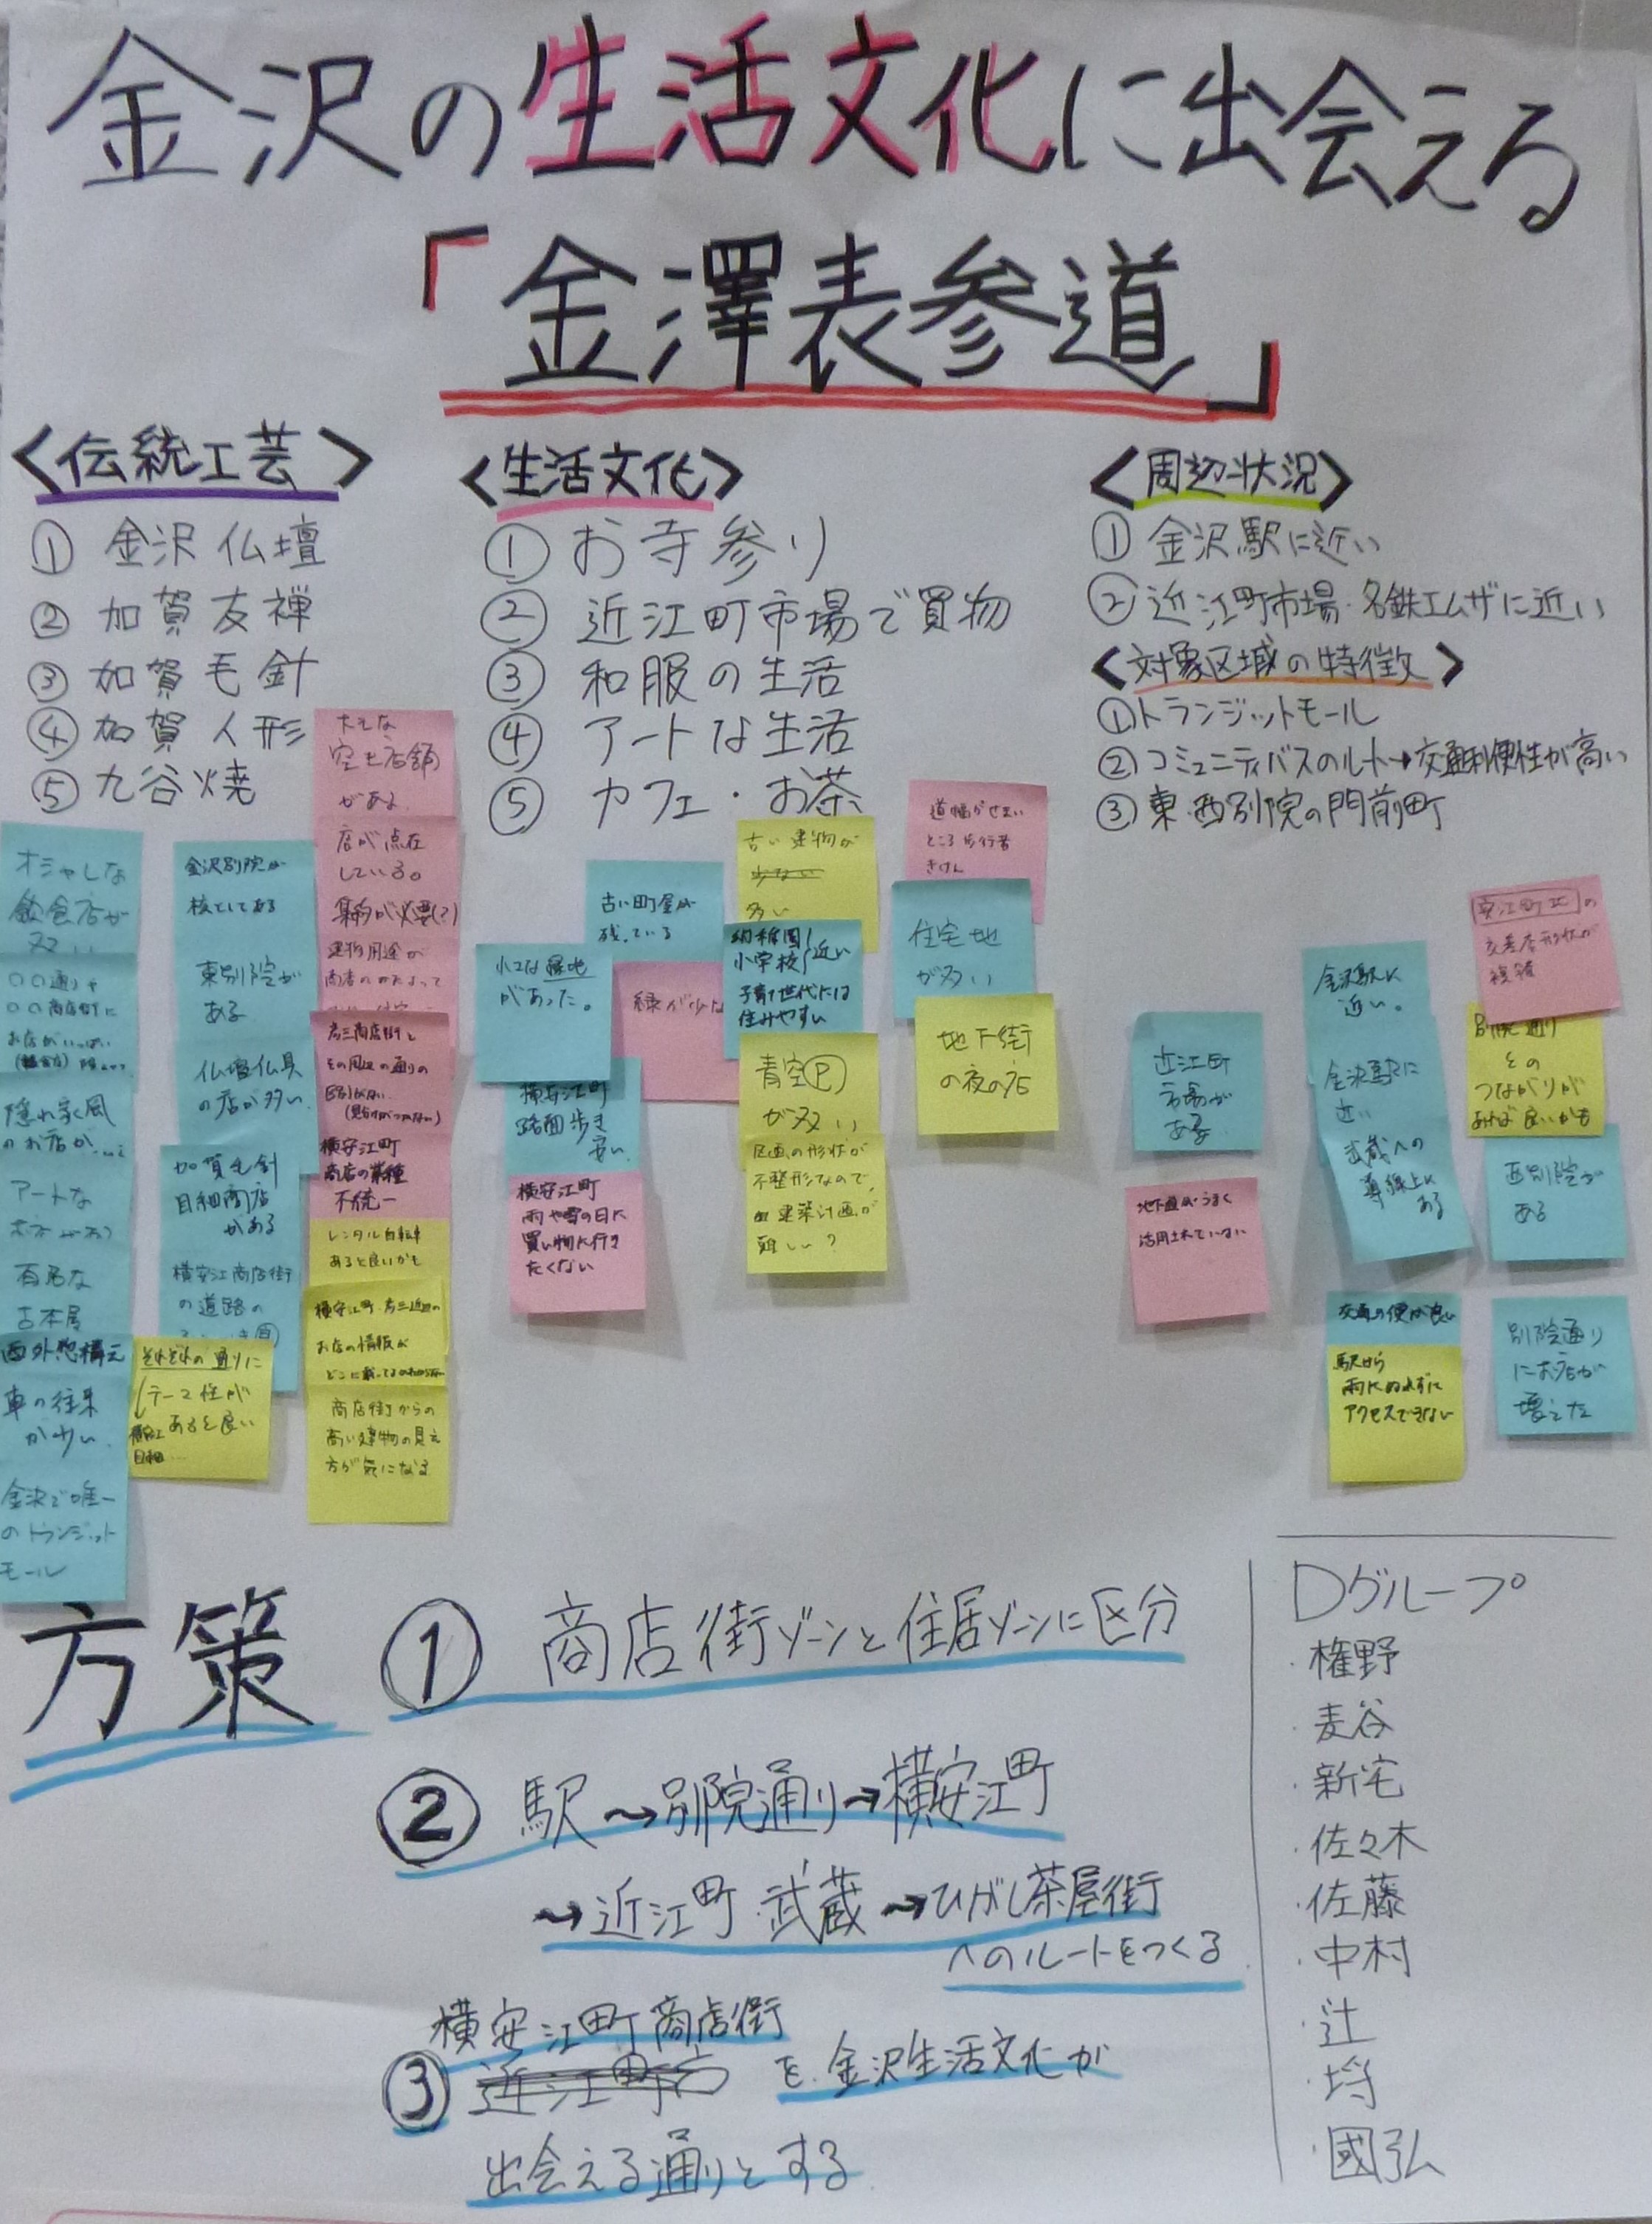 金沢の生活文化に出会える
「金澤表参道」
<伝統工芸>
① 金沢仏壇
② 加賀友禅
③ 加賀毛針
④ 加賀人形
⑤ 九谷焼
<生活文化>
① お寺参り
② 近江町市場で買物
③ 和服の生活
④ アートな生活
⑤ カフェ・お茶
<周辺状況>
① 金沢駅に近い
② 近江町市場・名鉄エムザに近い
<対象区域の特徴>
① トランジットモール
② コミュニティバスのルート→交通利便性が高い
③ 東・西別院の門前町
オシャレな
飲食店が
多い
〇〇通りや
〇〇商店街に
お店がいっぱい
隠れ家風
のお店が
アートな
有名な
古本屋
西外惣構え
車の往来
が少い
金沢で唯一
のトランジット
モール
金沢別院が
核としてある
東別院が
ある
仏壇仏具
の店が多い
加賀毛針
目細商店
がある
横安江商店街
の道路の
それぞれの通りに
テーマ性が
あると良い
大きな
空き店舗
がある
店が点在
している。
集約が必要(?)
建物用途が
その周辺の通りの
横安江町
商店の業種
不統一
レンタル自転車
あると良いかも
お店の情報が
商店街からの
高い建物の見え
方が気になる
古い町屋が
残っている
小さな緑地
があった。
緑が少な
横安江町
路面歩き
安い
横安江町
雨や雪の日に
買い物に行き
たくない
古い建物が
多い
幼稚園
小学校 近い
子育て世代には
住みやすい
青空Ⓟ
が多い
区画の形状が
不整形なので、
建築計画が
難しい?
道幅がせまい
ところ歩行者
きけん
住宅地
が多い
地下街
の夜の店
近江町
市場が
ある
地下道がうまく
活用されていない
金沢駅に
近い。
金沢駅に
近い
武蔵への
導線上に
ある
交通の便が良い
駅から
雨にぬれずに
アクセスできない
安江町北の
交差店形状が
複雑
別院通り
その
つながりが
あれば良いかも
西別院が
ある
別院通り
にお店が
増えた
方策
① 商店街ゾーンと住居ゾーンに区分
② 駅→別院通り→横安江町
→近江町・武蔵→ひがし茶屋街
へのルートをつくる
横安江町商店街
③ 近江町 を金沢生活文化が
出会える通りとする
Dグループ
・権野
・麦谷
・新宅
・佐々木
・佐藤
・中村
・辻
・埒
・國弘